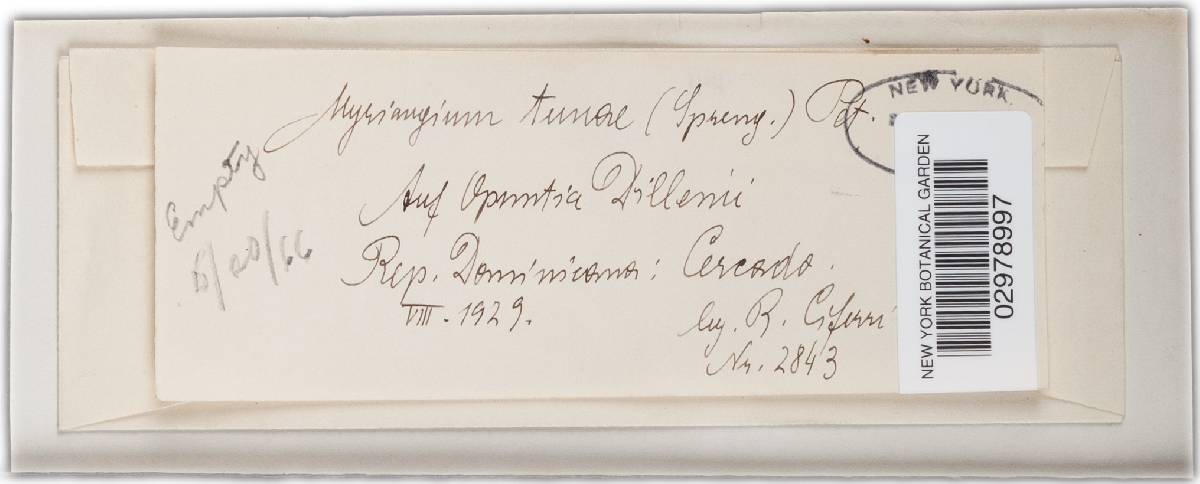 Myriangium tunae (Spreng.) Pat.
Auf Opuntia Dillenii
Rep. Dominicana: Cercado.
VIII. 1929.
leg. R. Ciferri
Nr. 2843
Empty
5/20/66
NEW YORK
NEW YORK BOTANICAL GARDEN
02978997